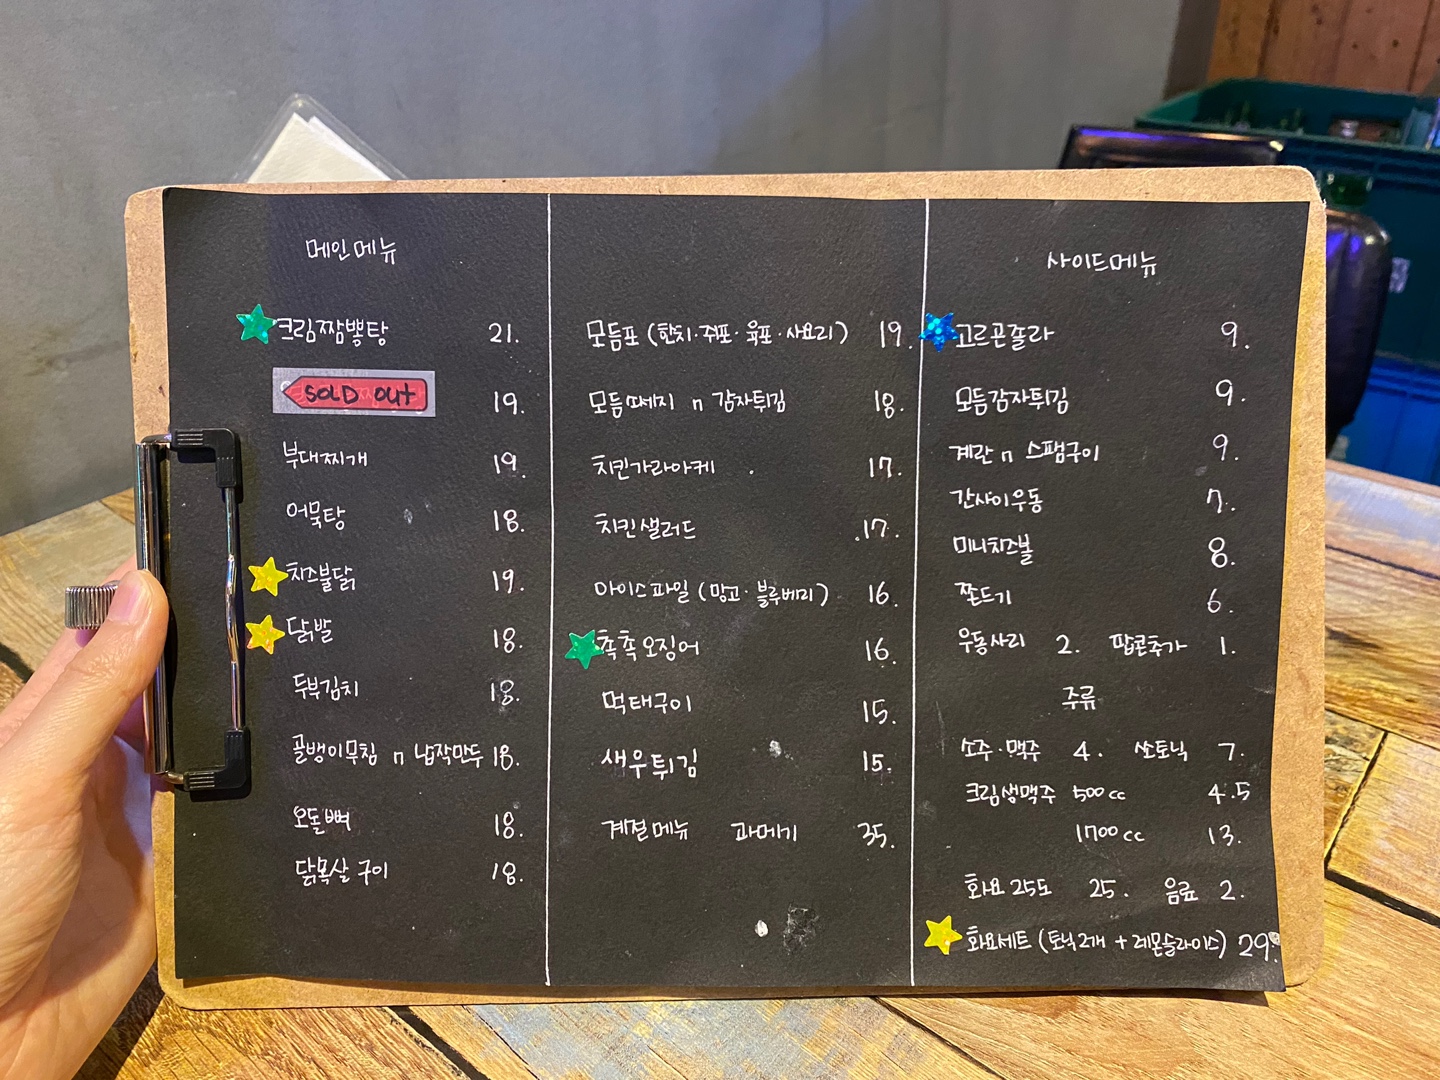 메인메뉴
크림짬뽕탕 21.
SOLD OUT 19.
부대찌개 19.
어묵탕 18.
치즈불닭 19.
닭발 18.
두부김치 18.
골뱅이무침 n 납작만두 18.
오돌뼈 18.
닭목살 구이 18.
모듬포 (한치·쥐포·육포·사요리) 19.
모듬쏘세지 n 감자튀김 18.
치킨가라아케 17.
치킨샐러드 17.
아이스파일 (망고·블루베리) 16.
촉촉오징어 16.
먹태구이 15.
새우튀김 15.
계절메뉴 과메기 35.
사이드메뉴
고르곤졸라 9.
모듬감자튀김 9.
계란 n 스팸구이 9.
간사이우동 7.
미니치즈볼 8.
쫀드기 6.
우동사리 2. 팝콘추가 1.
주류
소주·맥주 4. 쏘토닉 7.
크림생맥주 500cc 4.5
1700cc 13.
화요 25도 25. 음료 2.
화요세트 (토닉2개 + 레몬슬라이스) 29.